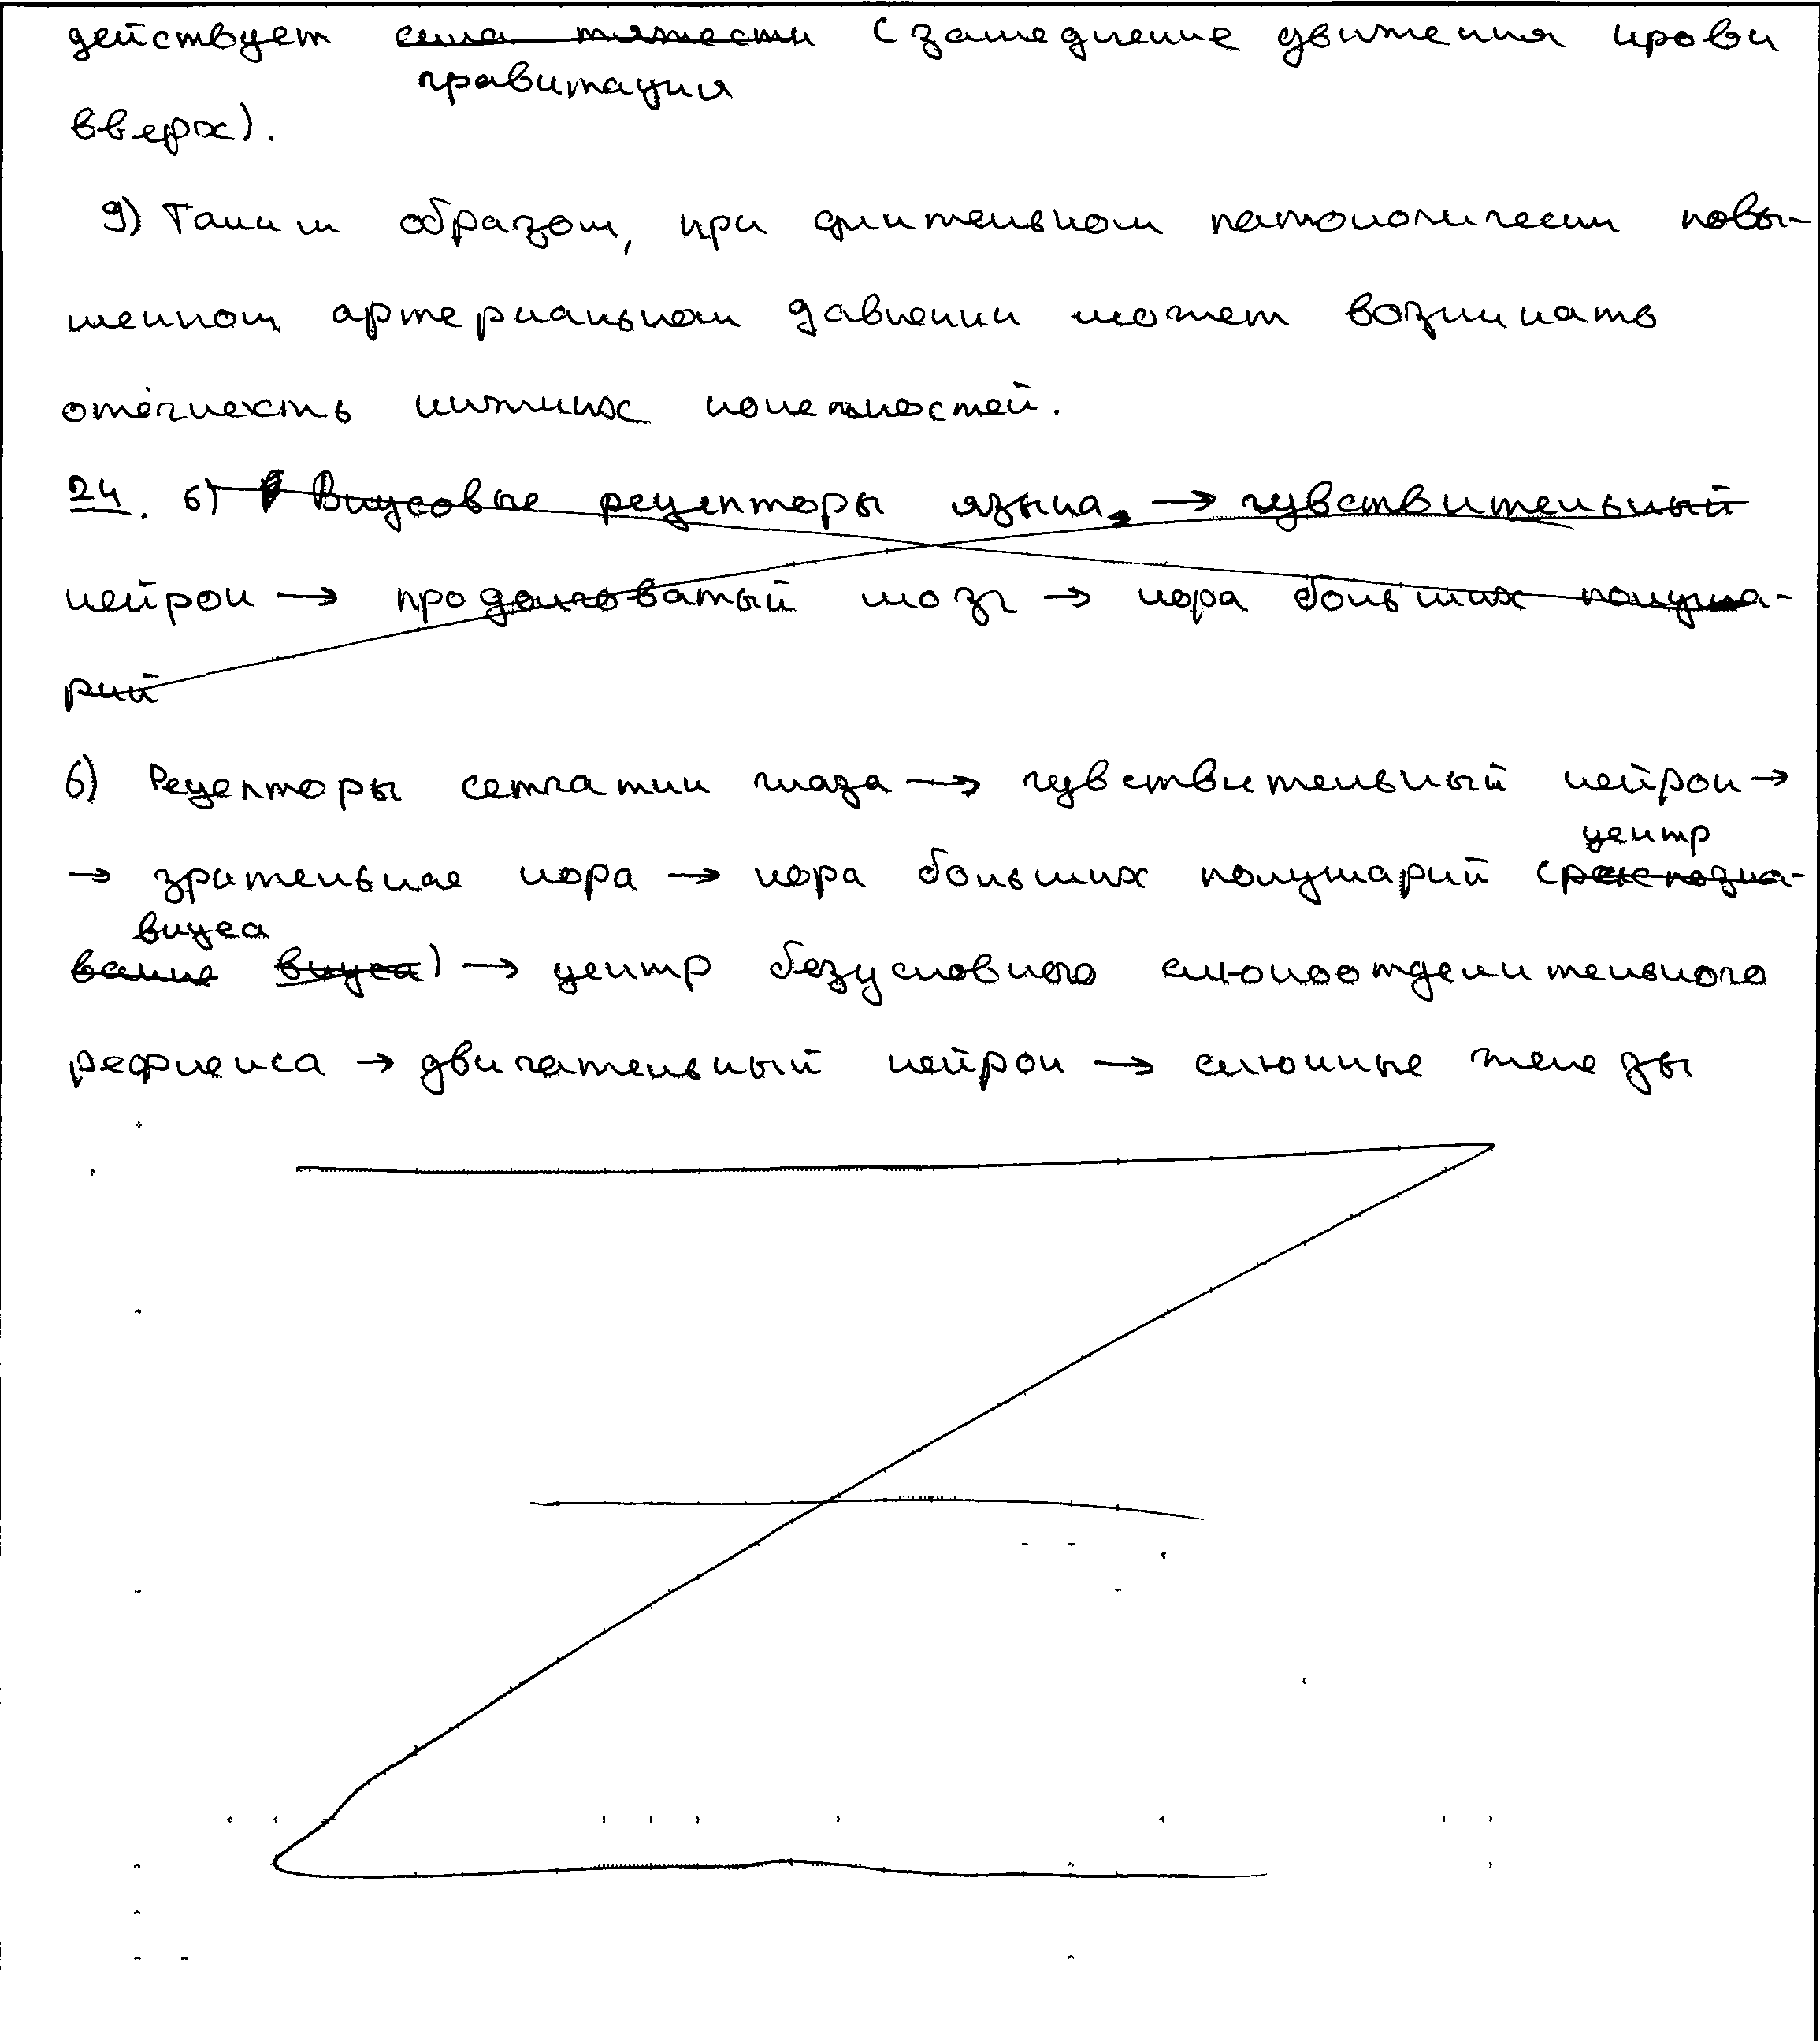 действует сила тяжести (замедление движения крови
гравитация
вверх).
9) Таким образом, при длительном патологически повы-
шенном артериальном давлении может возникать
отёчность нижних конечностей.
24. б) Вкусовые рецепторы языка → чувствительный
нейрон → продолговатый мозг → кора больших полуша-
рий
б) Рецепторы сетчатки глаза → чувствительный нейрон →
центр
→ зрительная кора → кора больших полушарий (распозна-
вкуса
вание вкуса) → центр безусловного слюноотделительного
рефлекса → двигательный нейрон → слюнные железы